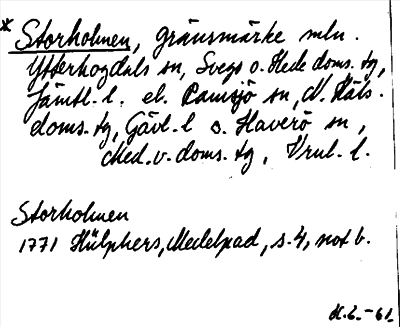 * Storholmen, gränsmärke mln.
Ytterhogdals sn, Svegs o. Hede doms. tg,
Jämtl. l. el. Ramsjö sn, N. Häls.
doms. tg, Gävl. l o. Haverö sn,
Med. v. doms. tg, Vrnl. l.
Storholmen
1771 Hülphers, Medelpad, s. 4, not b.
-61